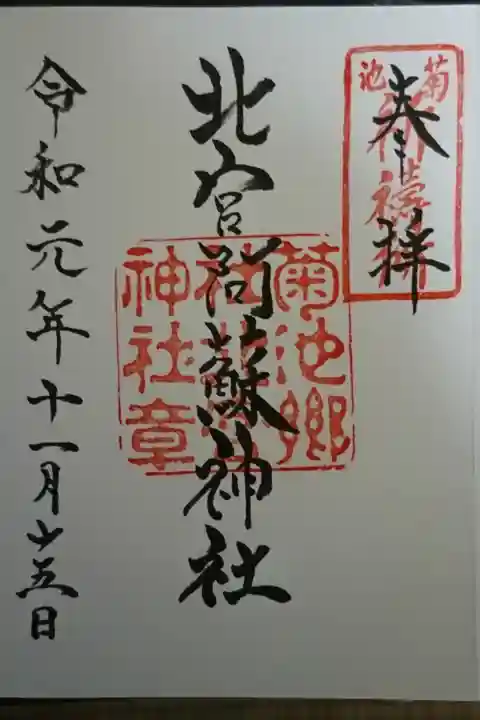 奉拝
菊池
北宮阿蘇神社
菊池郷
神社章
令和元年十一月廿五日